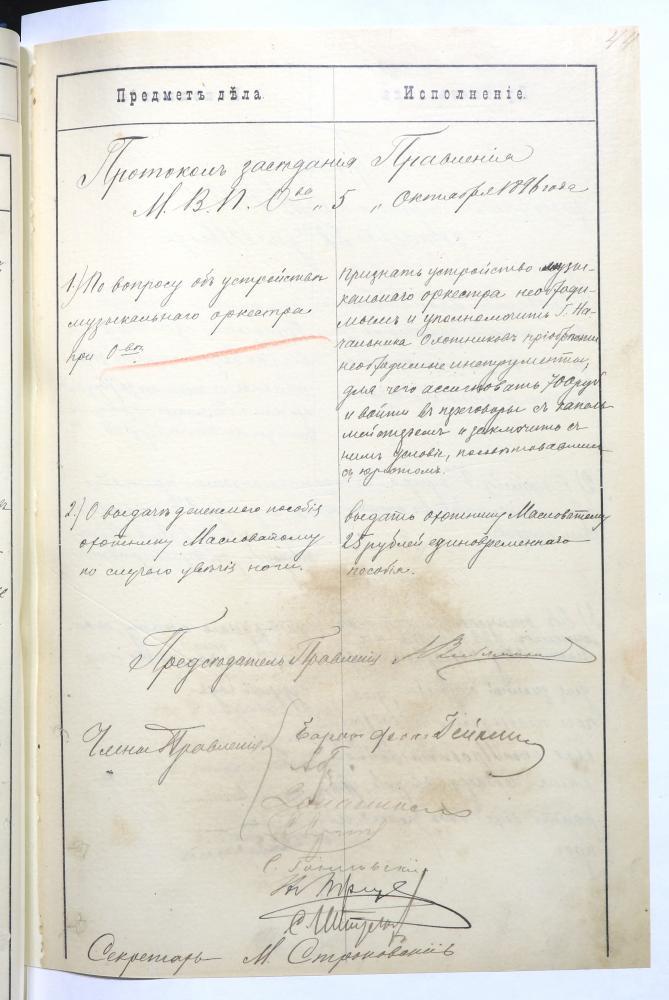 44
Предметъ дѣла.
Исполненіе.
Протоколъ засѣданія Правленія
М. В. П. О-ва „5„ Октября 1896 года
1.) По вопросу объ устройствѣ
музыкальнаго оркестра
при О-вѣ.
признать устройство музы-
кальнаго оркестра необходи-
мымъ и уполномочить Г. На-
чальника Охотниковъ пріобрѣсти
необходимые инструменты,
для чего ассигновать 700 руб
и войти въ переговоры съ капель-
мейстеромъ и заключить съ
нимъ условіе, посовѣтовавшись
съ юристомъ.
2.) О выдачѣ денежнаго пособія
охотнику Масловатому
по случаю увѣчія ноги.
выдать охотнику Масловатому
25 рублей единовременнаго
пособія.
Предсѣдатель Правленія
Члены Правленія
Баронъ фонъ
С.
С.
Секретарь М.